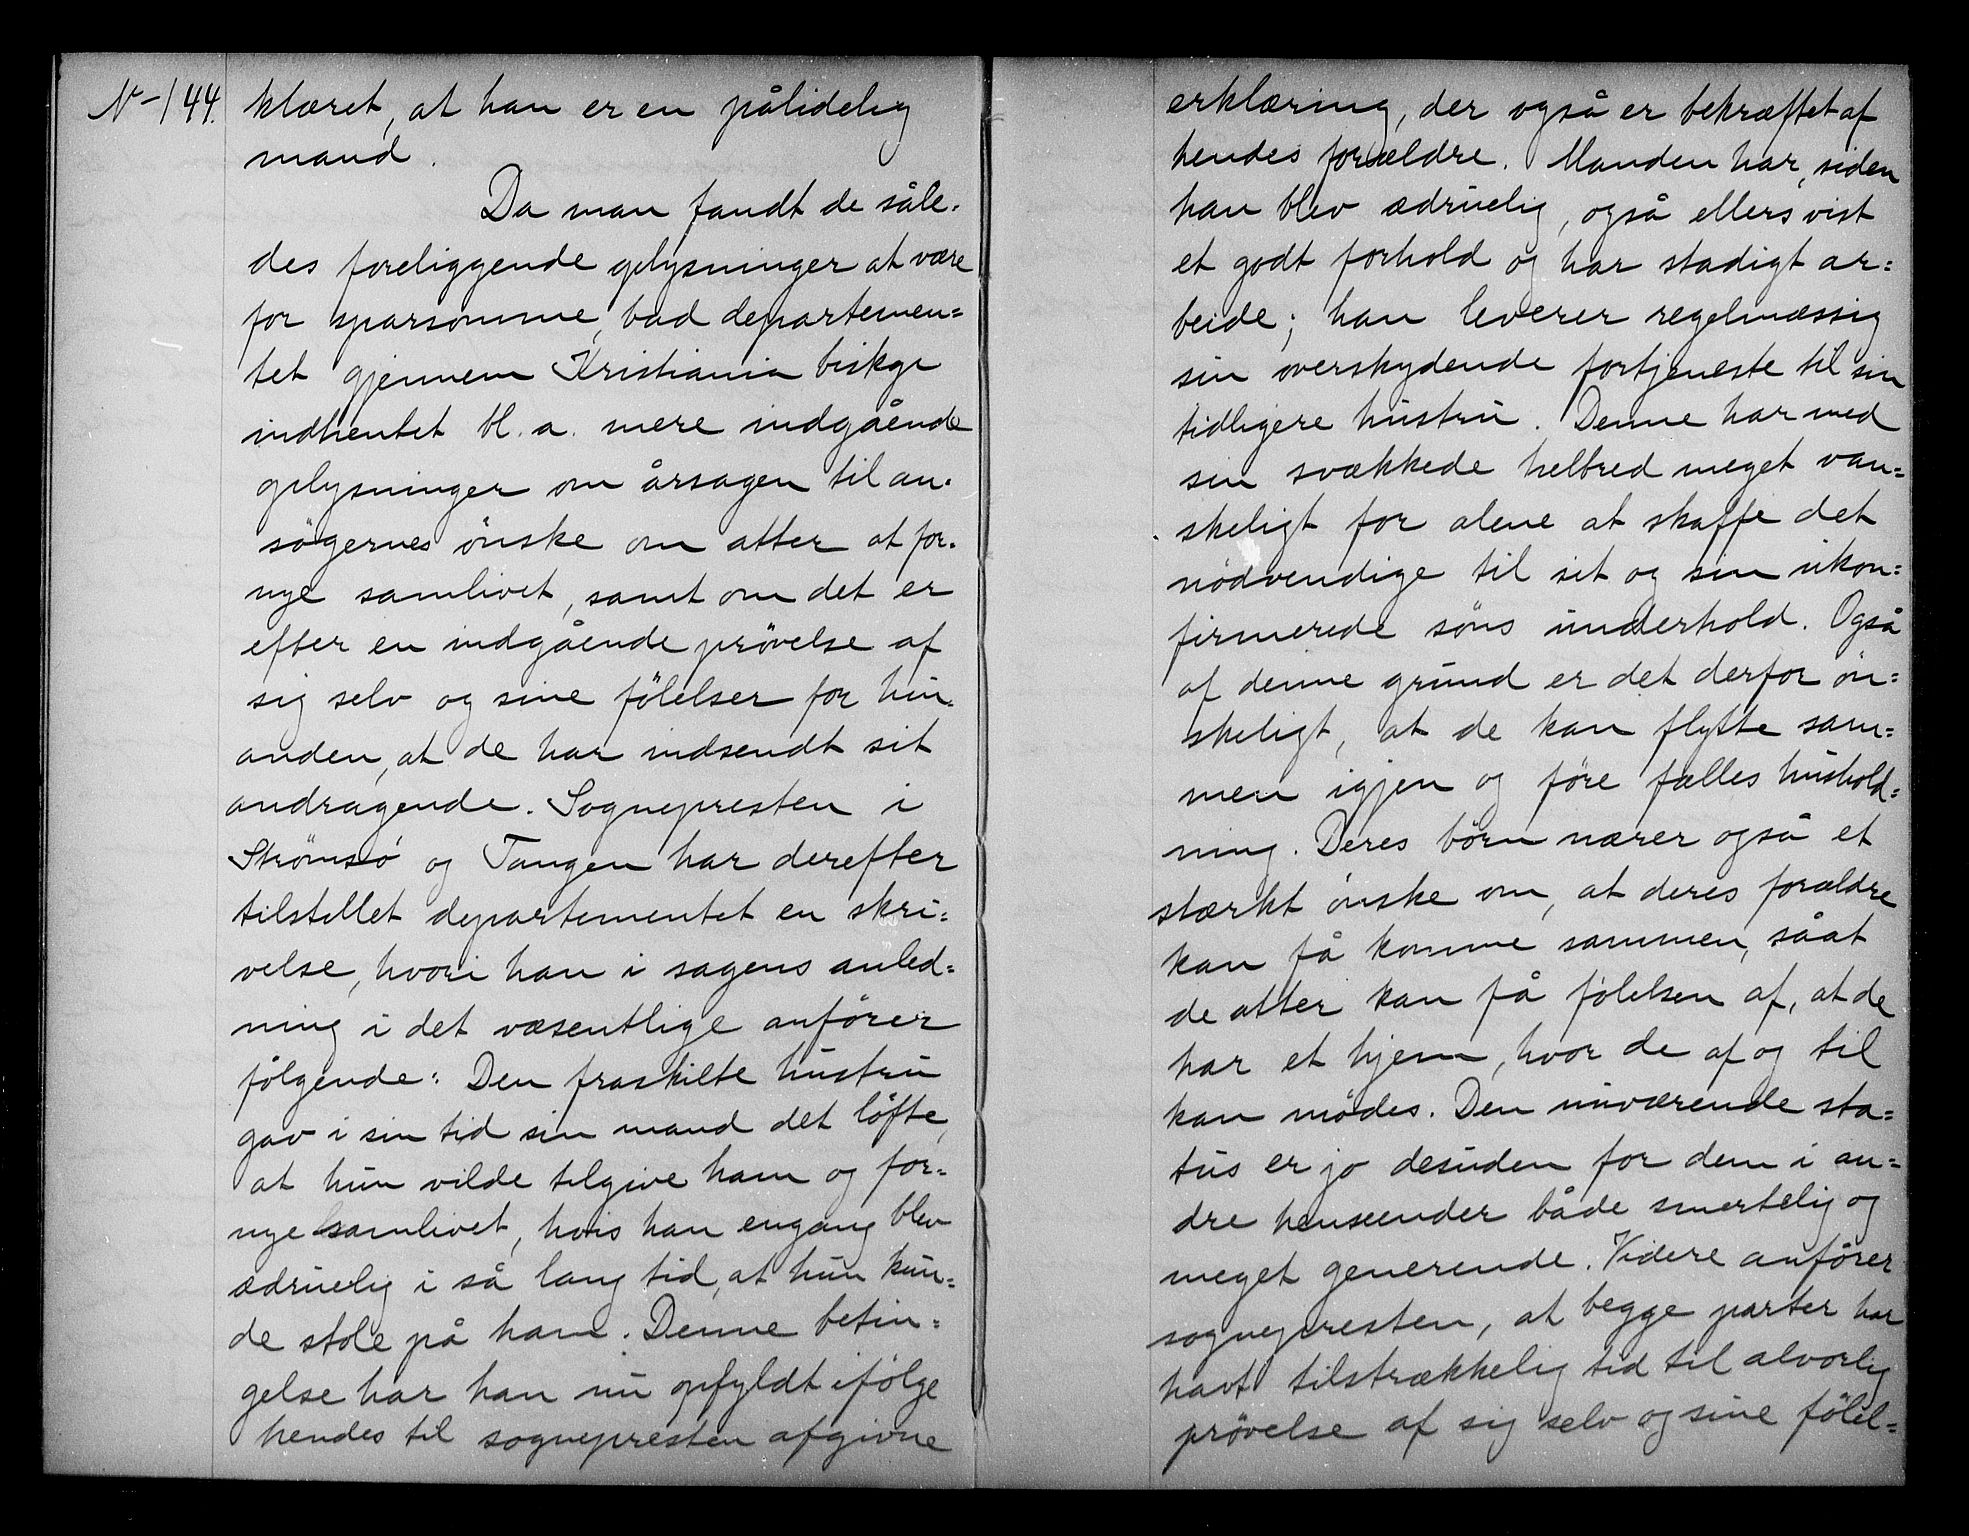 N-144.
klæret, at han er en pålidelig
mand.
Da man fandt de såle-
des foreliggende oplysninger at være
for sparsomme, bad departemen=
tet gjennem Kristiania biskop
indhentet bl. a. mere indgående
oplysninger om årsagen til an-
søgernes ønske om atter at for-
nye samlivet, samt om det er
efter en indgående prøvelse af
sig selv og sine følelser for hin-
anden, at de har indsendt sit
andragende. Sognepresten i
Strømsø og Tangen har derefter
tilstillet departementet en skri=
velse, hvori han i sagens anled=
ning i det væsentlige anfører
følgende: Den fraskilte hustru
gav i sin tid sin mand det løfte,
at hun vilde tilgive ham og for=
nye samlivet, hvis han engang blev
ædruelig i så lang tid, at hun kun=
de stole på ham. Denne betin=
gelse har han nu opfyldt ifølge
hendes til sognepresten afgivne
erklæring, der også er bekræftet af
hendes forældre. Manden har, siden
han blev ædruelig, også ellers vist
et godt forhold og har stadigt ar=
beide; han leverer regelmæssig
sin overskydende fortjeneste til sin
tidligere hustru. Denne har med
sin svækkede helbred meget van=
skeligt for alene at skaffe det
nødvendige til sit og sin ukon=
firmerede søns underhold. Også
af denne grund er det derfor øn=
skeligt, at de kan flytte sam=
men igjen og føre fælles hushold=
ning. Deres børn nærer også et
stærkt ønske om, at deres forældre
kan få komme sammen, såat
de atter kan få følelsen af, at de
har et hjem, hvor de af og til
kan mødes. Den nuværende sta=
tus er jo desuden for dem i an=
dre henseender både smertelig og
meget generende. Videre anfører
sognepresten, at begge parter har
havt tilstrækkelig tid til alvorlig
prøvelse af sig selv og sine følel=